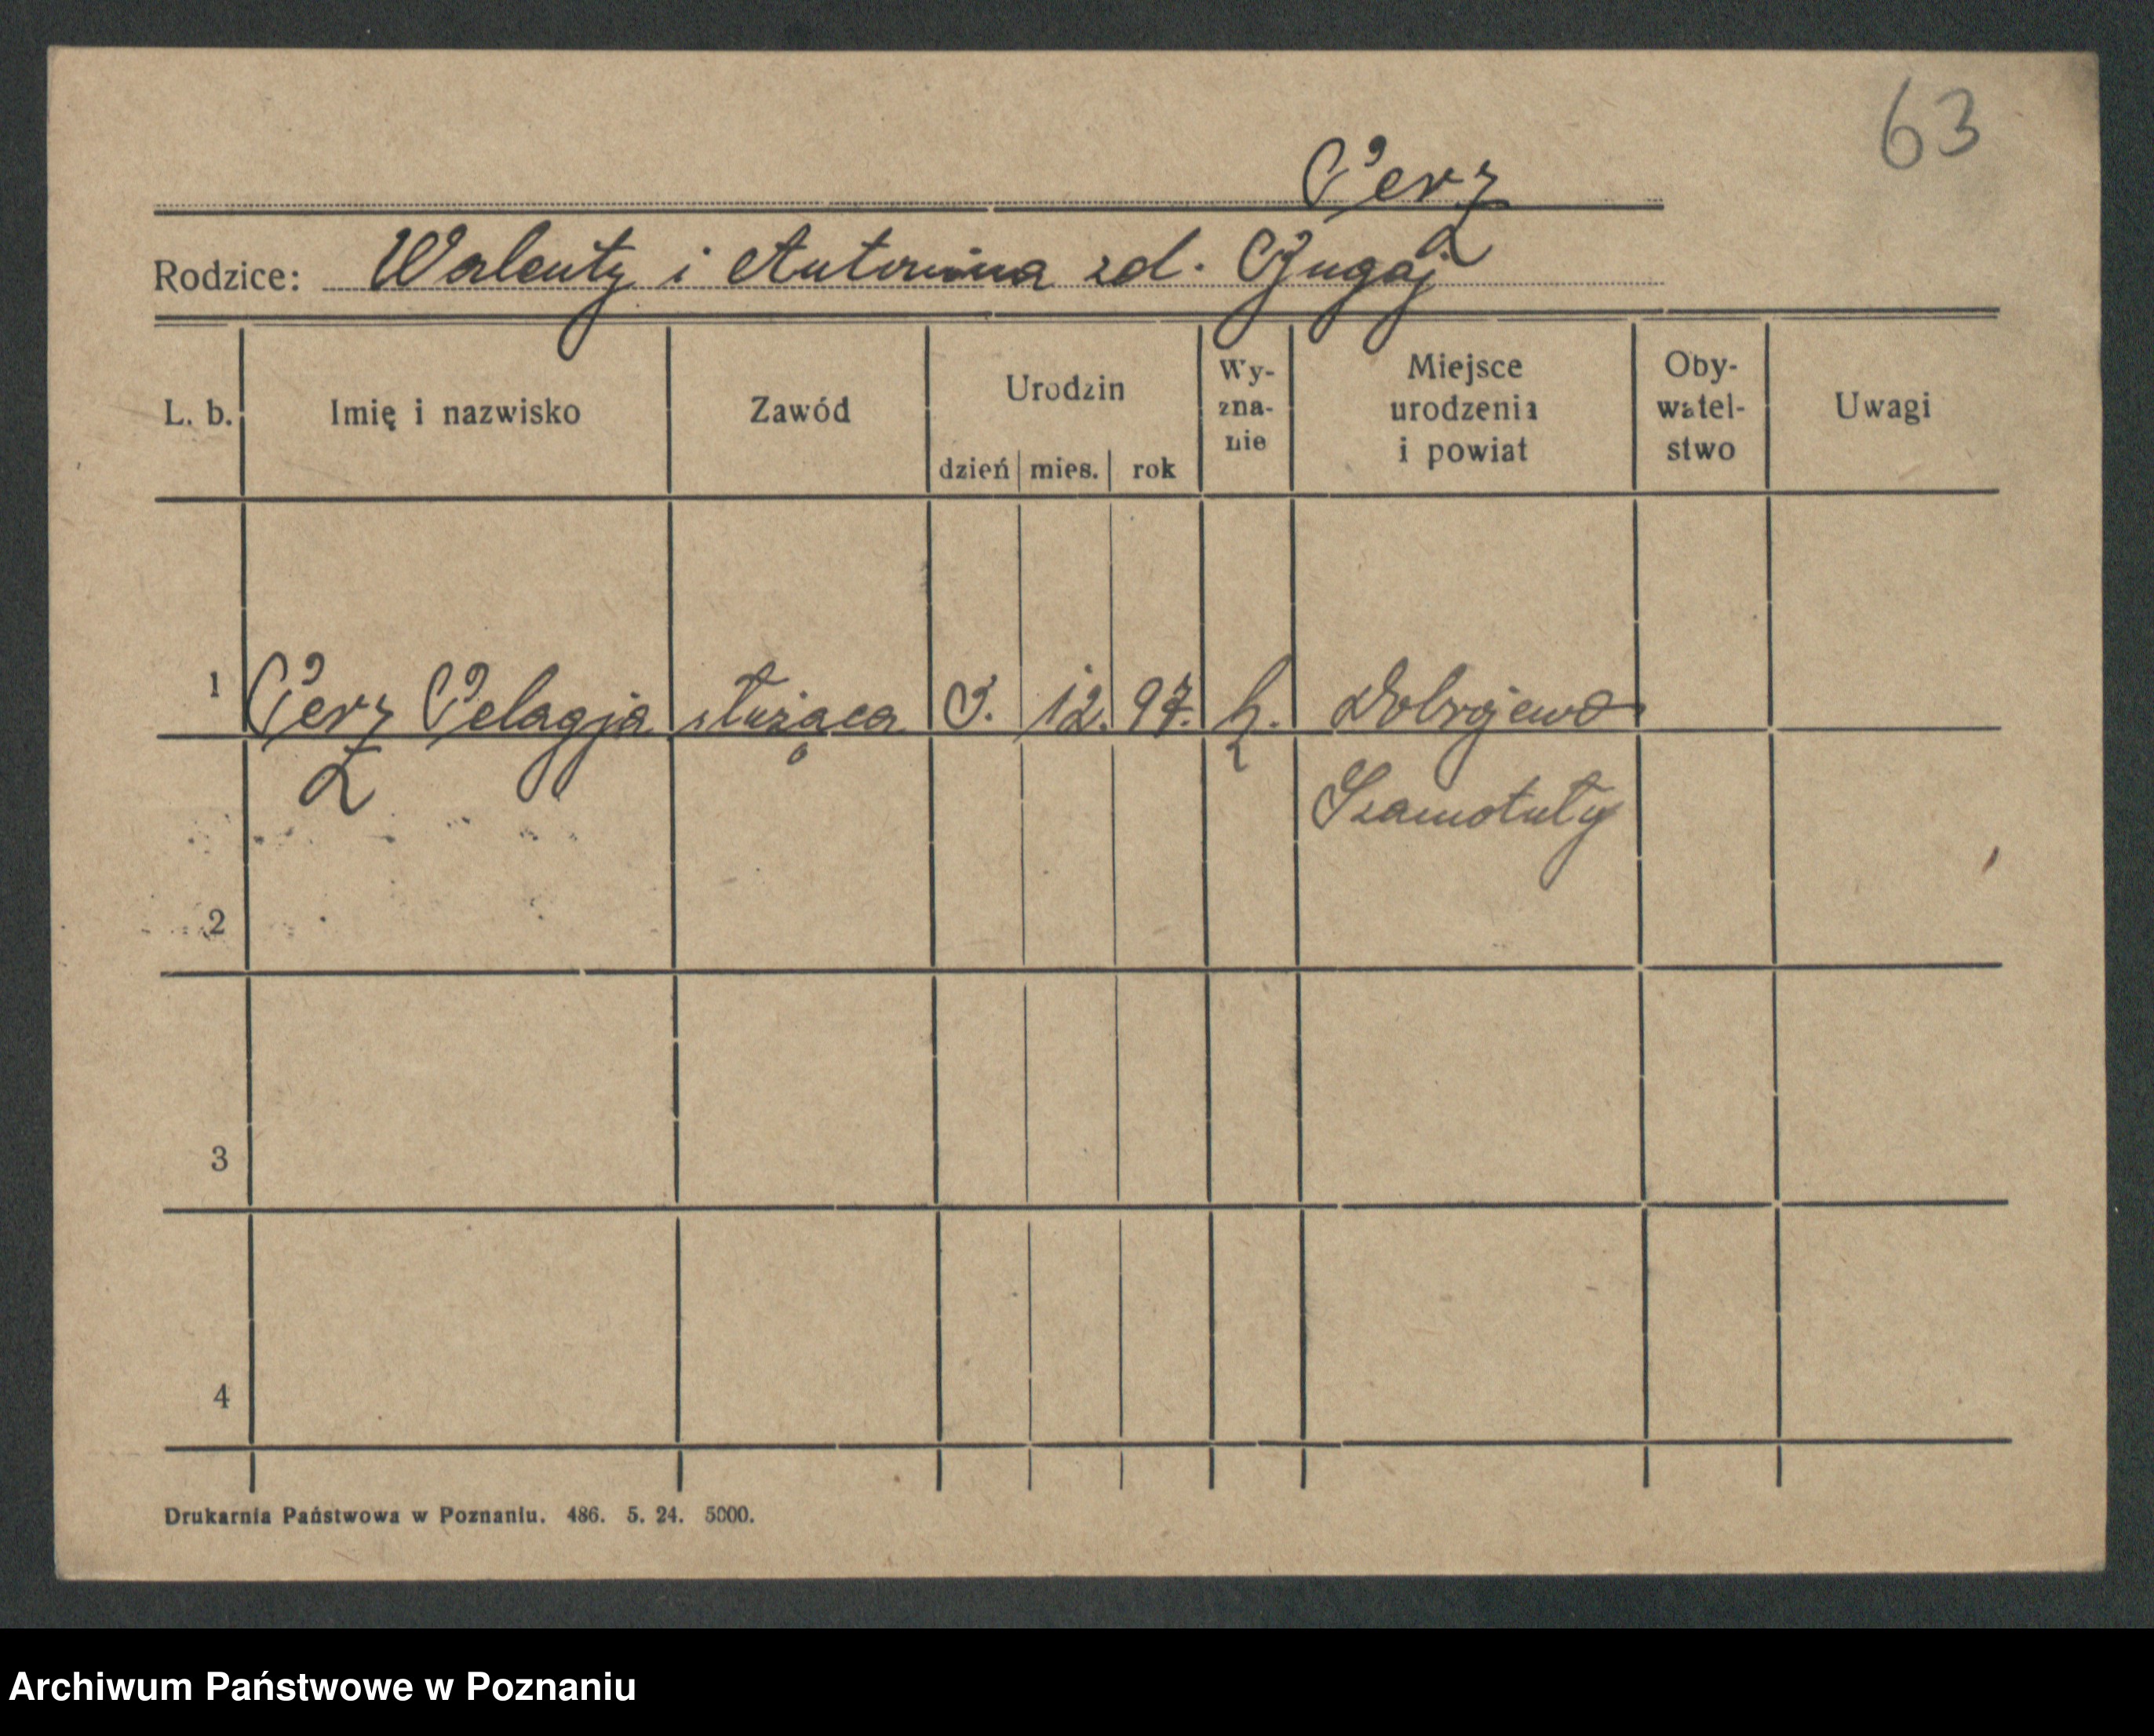 63
Perz
Rodzice: Walenty i Antonina zd.
L. b. Imię i nazwisko Zawód Urodzin dzień mies. rok Wy-zna-nie Miejsce urodzenia i powiat Oby-watel-stwo Uwagi
1 Perz Pelagja służąca 3. 12. 97. k. Dobrojewo
Szamotuły
2
3
4
Drukarnia Państwowa w Poznaniu. 486. 5. 24. 5000.
Archiwum Państwowe w Poznaniu